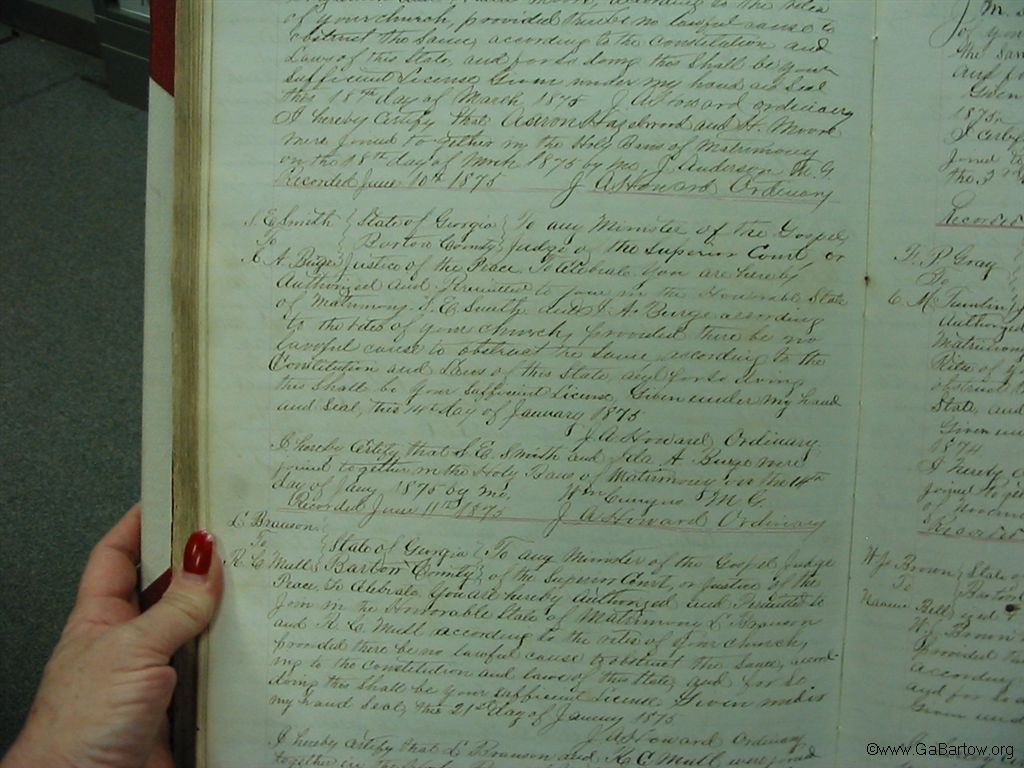 of your church, provided there be no lawful cause to
obstruct the same, according to the Constitution and
Laws of this State, and for so doing this Shall be your
Sufficient License Given under my hand and Seal
this 18th day of March 1875 J A Howard Ordinary
I hereby Certify that Aaron Hazelwood and H. Moore
were joined together in the Holy Bans of Matrimony
on the 18th day of Mch 1875 by me, J. Anderson M. G
Recorded June 10th 1875 J A Howard Ordinary
S. E. Smith { State of Georgia } To any Minister of the Gospel,
To Bartow County Judge of the Superior Court, or
I. A. Burge Justice of the Peace, To Celebrate. You are hereby
Authorized and Permitted to join in the Honorable State
of Matrimony S. E. Smith and I A Burge according
to the rites of your church, provided there be no
lawful cause to obstruct the Same, according to the
Constitution and Laws of this State, and for so doing
this Shall be your Sufficient License, Given under my hand
and Seal, this 14th day of January 1875
J. A Howard Ordinary
I hereby Certify that S. E. Smith and Ida A Burge were
joined together in the Holy Bans of Matrimony on the 14th
day of Jany 1875 by me, Wm M G.
Recorded June 11th 1875 J A Howard Ordinary
L. Branson
To { State of Georgia } To any Minister of the Gospel, Judge
K. C. Mull Bartow County of the Superior Court, or Justice of the
Peace, To Celebrate, You are hereby Authorized and Permitted to
Join in the Honorable State of Matrimony L. Branson
and K. C. Mull according to the rites of your church,
provided there be no lawful cause to obstruct the Same, accord
ing to the Constitution and laws of this State, and for so
doing this Shall be your Sufficient License Given under
my hand Seal, this 21st day of January 1875
J A Howard Ordinary
I hereby certify that L. Branson and K. C. Mull were joined
together in the
J. M.
of your
the Sam
and f
Given
1875
I certify
joined
the 3
Recorded
F. P Gray
To
C. M.
Authorized
Matrimony
Rites of
obstruct
State, and
Given un
1874
I hereby
joined toget
of
Recorded
W J Brown { State of
To Bartow
Naomi Bell
W J Brown
Provided th
according
and for so
Given und
©www.GaBartow.org